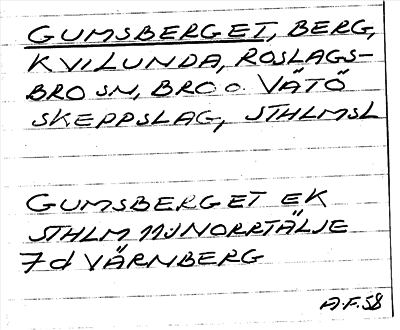 GUMSBERGET, BERG,
KVILUNDA, ROSLAGS-
BRO SN, BRO O. VÄTÖ
SKEPPSLAG, STHLMSL
GUMSBERGET EK
STHLM 11J NORRTÄLJE
7d VÄRMBERG
A.F. 58